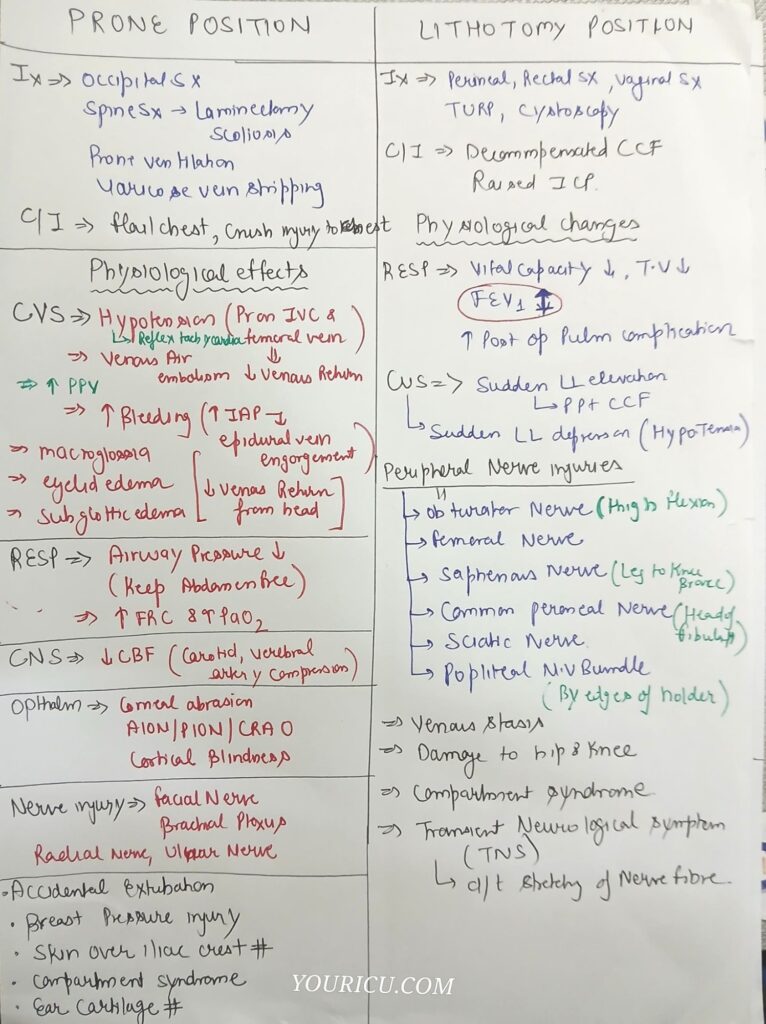 PRONE POSITION
Ix => Occipital Sx
Spine Sx → Laminectomy
Scoliosis
Prone ventilation
Varicose vein stripping
C/I => flail chest, Crush injury to chest
Physiological effects
CVS => Hypotension (Pron IVC &
↳ Reflex tachycardia femoral vein)
⇓
=> Venous Air
embolism ↓ Venous Return
=> ↑ PPV
=> ↑ Bleeding (↑ IAP →
epidural vein
engorgement)
=> macroglossia
=> eyelid edema
=> subglottic edema
[↓ Venous Return
from head]
RESP => Airway Pressure ↓
(Keep Abdomen free)
=> ↑ FRC & ↑ PaO2
CNS => ↓ CBF (Carotid, Verebral
artery Compression)
Opthalm => Corneal abrasion
AION/PION/CRAO
Cortical Blindness
Nerve injury => facial Nerve
Brachial Plexus
Radial Nerve, Ulnar Nerve
• Accidental Extubation
• Breast Pressure injury
• Skin over iliac crest #
• Compartment syndrome
• Ear Cartilage #
LITHOTOMY POSITION
Ix => Perineal, Rectal Sx, Vaginal Sx
TURP, Cystoscopy
C/I => Decommpensated CCF
Raised ICP.
Physiological changes
RESP => Vital Capacity ↓, T.V ↓
FEV1 ↕
↑ Post op Pulm complication
CVS => Sudden LL elevation
↳ PPt CCF
↳ Sudden LL depression (HypoTension)
Peripheral Nerve injuries
↳ obturator Nerve (thigh flexion)
↳ femoral Nerve
↳ Saphenous Nerve (Leg to Knee
Brace)
↳ Common peroneal Nerve (Head of
fibula)
↳ Sciatic Nerve
↳ Popliteal N.V Bundle
(By edges of holder)
=> Venous stasis
=> Damage to hip & Knee
=> Compartment syndrome
=> Transient Neurological symptom
(TNS)
↳ d/t stretchg of Nerve fibre.
YOURICU.COM